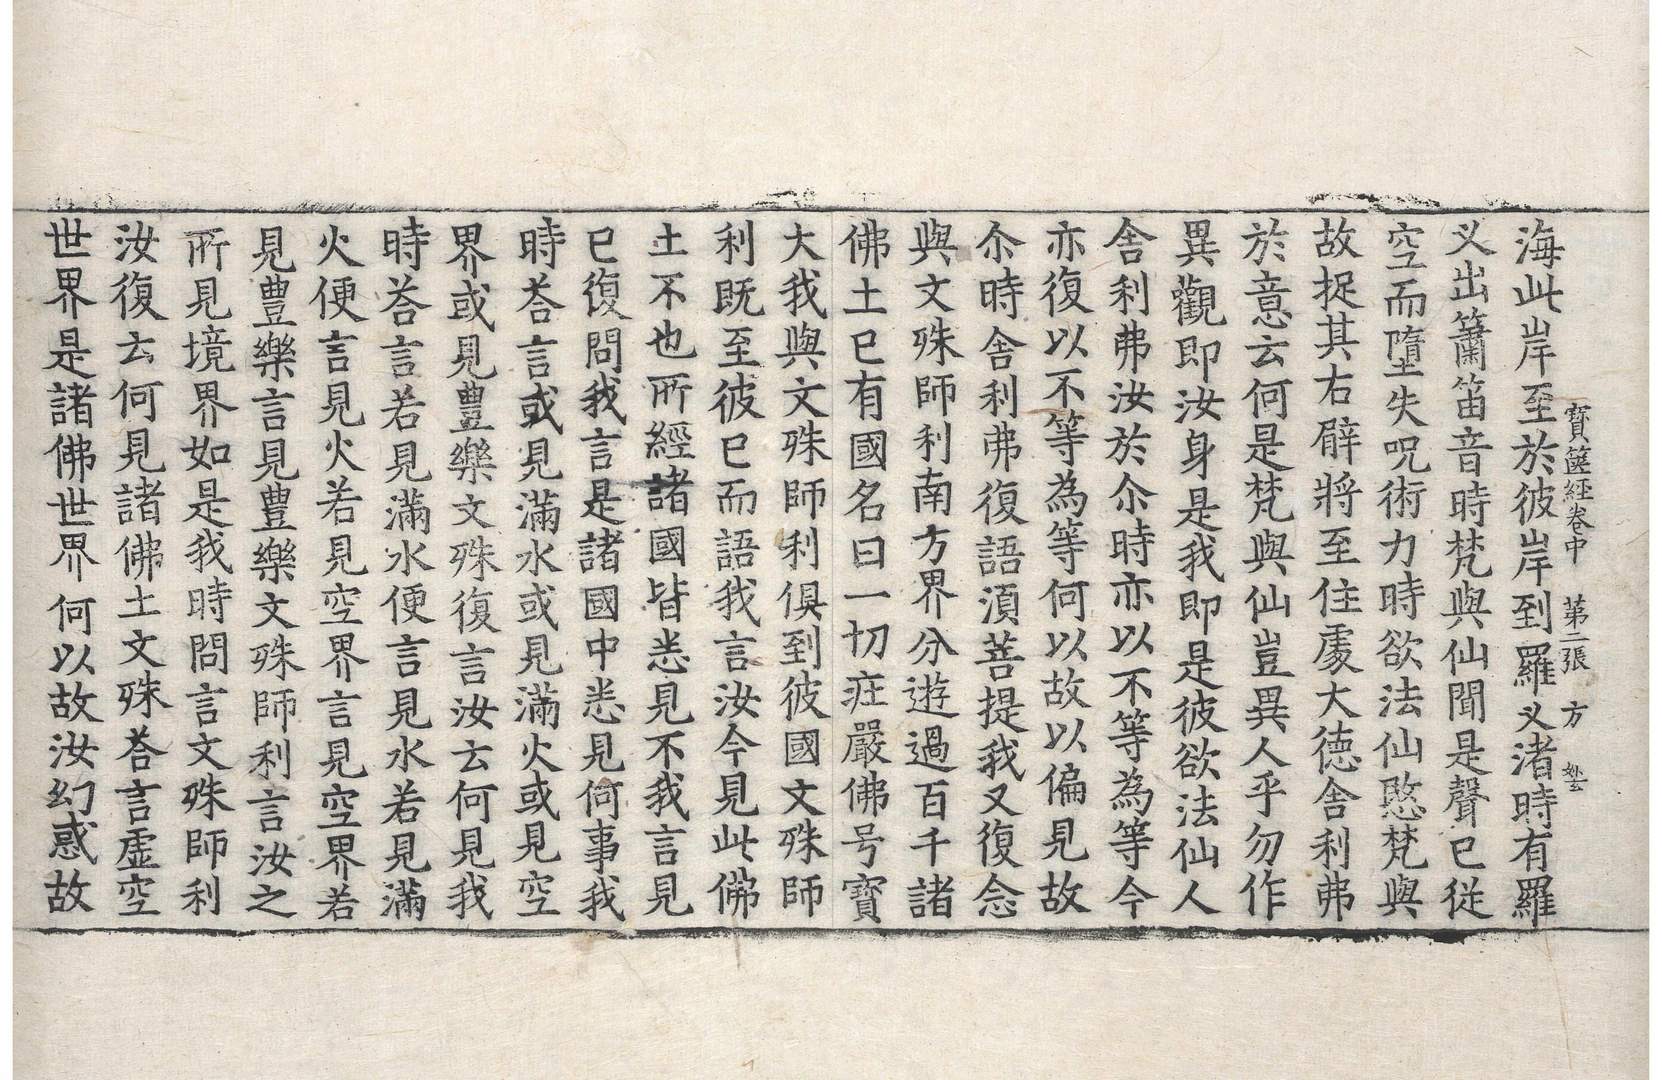 海此岸至於彼岸到羅义渚時有羅
寶篋經卷中 第二張 方
义出簫笛音時梵與仙聞是聲已從
空而墮失呪術力時欲法仙愍梵與
故捉其右臂將至住處大德舍利弗
於意云何是梵與仙豈異人乎勿作
異觀即汝身是我即是彼欲法仙人
舍利弗汝於尒時亦以不等為等今
亦復以不等為等何以故以偏見故
尒時舍利弗復語湏菩提我又復念
與文殊師利南方界分遊過百千諸
佛土已有國名曰一切庄嚴佛号寶
大我與文殊師利俱到彼國文殊師
利既至彼已而語我言汝今見此佛
土不也所經諸國皆悉見不我言見
已復問我言是諸國中悉見何事我
時荅言或見滿水或見滿火或見空
界或見豊樂文殊復言汝云何見我
時荅言若見滿水便言見水若見滿
火便言見火若見空界言見空界若
見豊樂言見豊樂文殊師利言汝之
所見境界如是我時問言文殊師利
汝復云何見諸佛土文殊荅言虛空
世界是諸佛世界何以故汝幻惑故